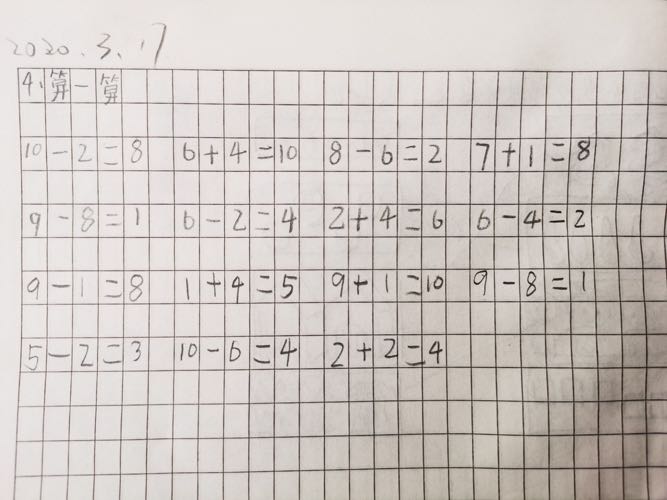 2020.3.17
4、算一算
10-2=8 6+4=10 8-6=2 7+1=8
9-8=1 6-2=4 2+4=6 6-4=2
9-1=8 1+4=5 9+1=10 9-8=1
5-2=3 10-6=4 2+2=4